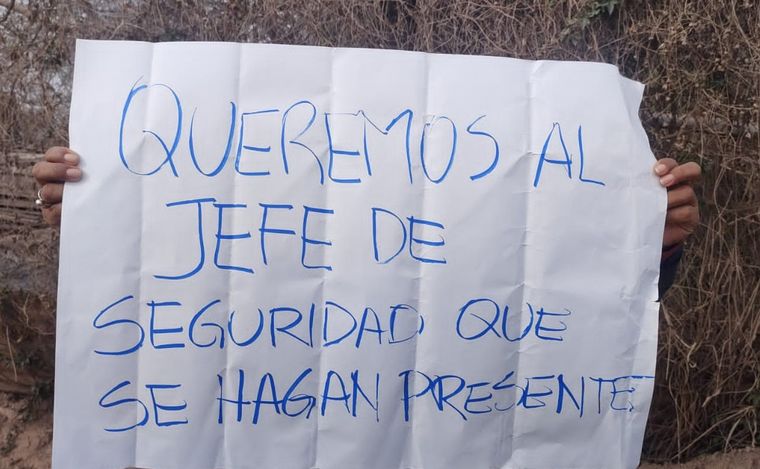 QUEREMOS AL
JEFE DE
SEGURIDAD QUE
SE HAGAN PRESENTE